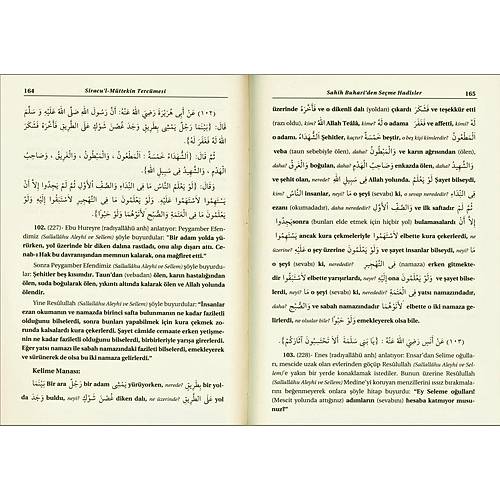 164 Siracu'l-Müttekin Tercümesi
(١٠٢) عَنْ أَبِي هُرَيْرَةَ رَضِيَ اللّٰهُ عَنْهُ: أَنَّ رَسُولَ اللّٰهِ صَلَّى اللّٰهُ عَلَيْهِ وَ سَلَّمَ
قَالَ: {بَيْنَمَا رَجُلٌ يَمْشِي بِطَرِيقٍ وَجَدَ غُصْنَ شَوْكٍ عَلَى الطَّرِيقِ فَأَخَّرَهُ فَشَكَرَ
اللّٰهُ لَهُ فَغَفَرَ لَهُ}
ثُمَّ قَالَ: {الشُّهَدَاءُ خَمْسَةٌ: الْمَطْعُونُ، وَالْمَبْطُونُ، وَالْغَرِيقُ، وَصَاحِبُ
الْهَدْمِ، وَالشَّهِيدُ فِي سَبِيلِ اللّٰهِ}
وَقَالَ: {لَوْ يَعْلَمُ النَّاسُ مَا فِي النِّدَاءِ وَالصَّفِّ الْأَوَّلِ ثُمَّ لَمْ يَجِدُوا إِلَّا أَنْ
يَسْتَهِمُوا لَاسْتَهَمُوا عَلَيْهِ. وَلَوْ يَعْلَمُونَ مَا فِي التَّهْجِيرِ لَاسْتَبَقُوا إِلَيْهِ وَلَوْ
يَعْلَمُونَ مَا فِي الْعَتَمَةِ وَالصُّبْحِ لَأَتَوْهُمَا وَلَوْ حَبْوًا}.
102. (227)- Ebu Hureyre (radıyallâhü anh) anlatıyor: Peygamber Efen-
dimiz (Sallallâhu Aleyhi ve Sellem) şöyle buyurdular: "Bir adam yolda yü-
rürken, yol üzerinde bir diken dalına rastladı, onu alıp dışarı attı. Ce-
nab-ı Hak bu davranışından memnun kalarak, ona mağfiret etti."
Sonra Peygamber Efendimiz (Sallallâhu Aleyhi ve Sellem) şöyle buyurdu-
lar: Şehitler beş kısımdır: Taun'dan (vebadan) ölen, karın hastalığından
ölen, suda boğularak ölen, yıkıntı altında kalarak ölen ve Allah yolunda
ölendir.
Yine Resûlullah (Sallallâhu Aleyhi ve Sellem) şöyle buyurdular: "İnsanlar
ezan okumanın ve namazda birinci safta bulunmanın ne kadar faziletli
olduğunu bilselerdi, sonra bunları yapabilmek için kura çekmek zo-
runda kalsalardı kura çekerlerdi. Şayet cümide cemaate erken yetişme-
nin ne kadar faziletli olduğunu bilselerdi, birbirleriyle yarışırlardı.
Eğer yatsı namazı ile sabah namazındaki fazileti bilselerdi, emekleyerek
ve sürünerek de olsa bu iki namaza gelirlerdi."
Kelime Manası:
بَيْنَمَا Bir ara رَجُلٌ bir adam يَمْشِي yürüyorken, nerede? بِطَرِيقٍ bir yol-
da وَجَدَ buldu, neyi? غُصْنَ شَوْكٍ diken dalı, ne üzerinde? عَلَى الطَّرِيقِ yol
Sahih Buhari'den Seçme Hadisler 165
üzerinde فَأَخَّرَهُ ve o dikenli dalı (yoldan) çıkardı فَشَكَرَ ve teşekkür etti
(razı oldu), kim? اللّٰهُ Allah Teâlâ, kime? لَهُ o adama فَغَفَرَ ve affetti, kimi? لَهُ
o adamı. الشُّهَدَاءُ Şehitler, kaçtır? خَمْسَةٌ beştir, o beş kişi kimlerdir? الْمَطْعُونُ
veba (taun sebebiyle ölen), daha? وَالْمَبْطُونُ ve karın ağrısından (ölen),
daha? وَالْغَرِيقُ boğulan, daha? وَصَاحِبُ الْهَدْمِ enkazda ölen, daha? وَالشَّهِيدُ
ve şehit olan, nerede? فِي سَبِيلِ اللّٰهِ Allah yolunda. لَوْ يَعْلَمُ Şayet bilseydi,
kim? النَّاسُ insanlar, neyi? مَا o şeyi (sevabı) ki, o sevap nerededir? فِي النِّدَاءِ
ezan (okumadadır), daha nerededir? وَالصَّفِّ الْأَوَّلِ ve ilk saftadır ثُمَّ لَمْ
يَجِدُوا sonra (bunları elde etmek için hiçbir yol) bulamasalardı إِلَّا أَنْ
يَسْتَهِمُوا ancak kura çekmeleriyle لَاسْتَهَمُوا elbette kura çekerlerdi, neye?
عَلَيْهِ o şey üzerine وَلَوْ يَعْلَمُونَ ve şayet insanlar bilseydi, neyi? مَا
o şeyi (sevabı) ki, nerededir? فِي التَّهْجِيرِ (namaza) erken gitmekte-
dir لَاسْتَبَقُوا elbette yarışırlardı, neye? إِلَيْهِ ona وَلَوْ يَعْلَمُونَ ve şayet bilse-
lerdi, neyi? مَا o şeyi (sevabı) ki, nerededir? فِي الْعَتَمَةِ yatsı namazındadır
وَالصُّبْحِ ve sabah namazındadır لَأَتَوْهُمَا elbette o iki namaza gelir-
lerdi, ne olsalar bile? وَلَوْ حَبْوًا emekleyerek olsa bile.
(١٠٣) عَنْ أَنَسٍ رَضِيَ اللّٰهُ عَنْهُ: {يَا بَنِي سَلِمَةَ أَلَا تَحْتَسِبُونَ آثَارَكُمْ}.
103. (228)- Enes (radıyallâhü anh) anlatıyor: Ensar'dan Selime oğulla-
rı, mescide uzak olan evlerinden göçüp Resûlullah (Sallallâhu Aleyhi ve Sel-
lem)'e yakın bir yerde konaklamak istediler. Bunun üzerine Resûlullah
(Sallallâhu Aleyhi ve Sellem) Medine'yi koruyan menzillerini ıssız bırakmala-
rını beğenmeyerek onlara şöyle hitap buyurdu: "Ey Seleme oğulları!
(Mescit yolunda attığınız) adımların (sevabını) hesaba katmıyor musu-
nuz?"